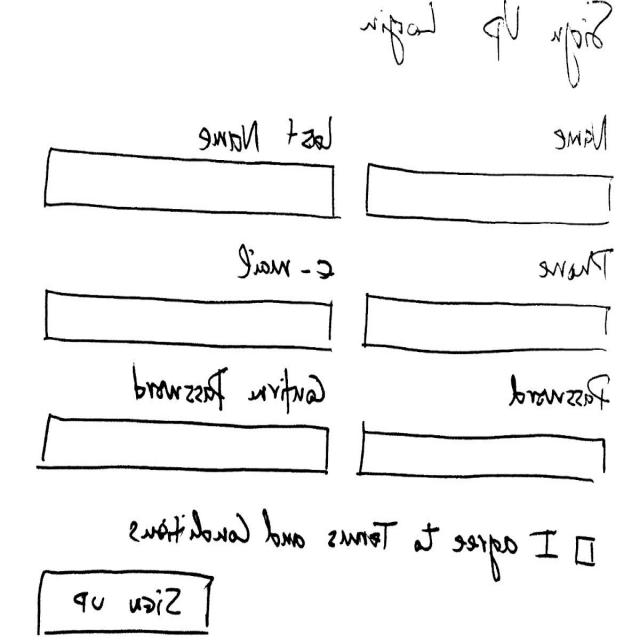 Sign Up Login
Name Last Name
Phone e-mail
Password Confirm Password
I agree to Terms and Conditions
Sign up